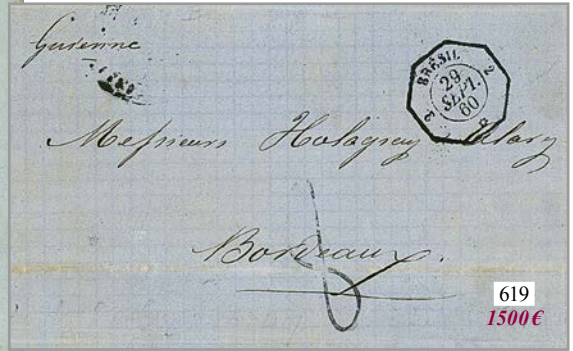 Guienne
BRÉSIL 2
29
SEPT.
60
3
Messieurs Holagray
Bordeaux.
8
619
1500 €